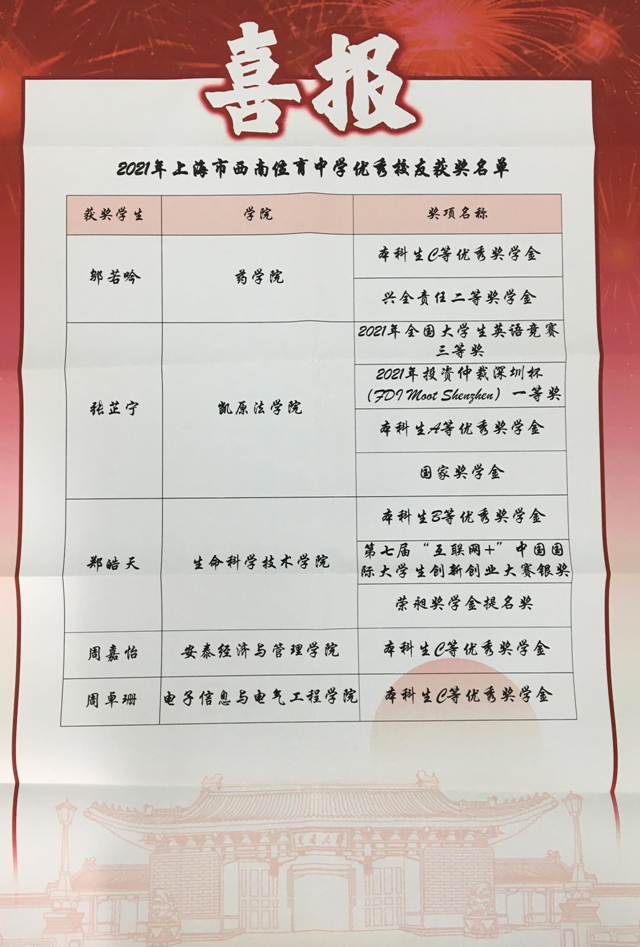 喜报
2021年上海市西南位育中学优秀校友获奖名单
获奖学生 学院 奖项名称
邬若吟 药学院 本科生C等优秀奖学金
兴全责任二等奖学金
张芷宁 凯原法学院 2021年全国大学生英语竞赛
三等奖
2021年投资仲裁深圳杯
（FDI Moot Shenzhen）一等奖
本科生A等优秀奖学金
国家奖学金
郑皓天 生命科学技术学院 本科生B等优秀奖学金
第七届“互联网+”中国国
际大学生创新创业大赛银奖
荣昶奖学金提名奖
周嘉怡 安泰经济与管理学院 本科生C等优秀奖学金
周卓珊 电子信息与电气工程学院 本科生C等优秀奖学金